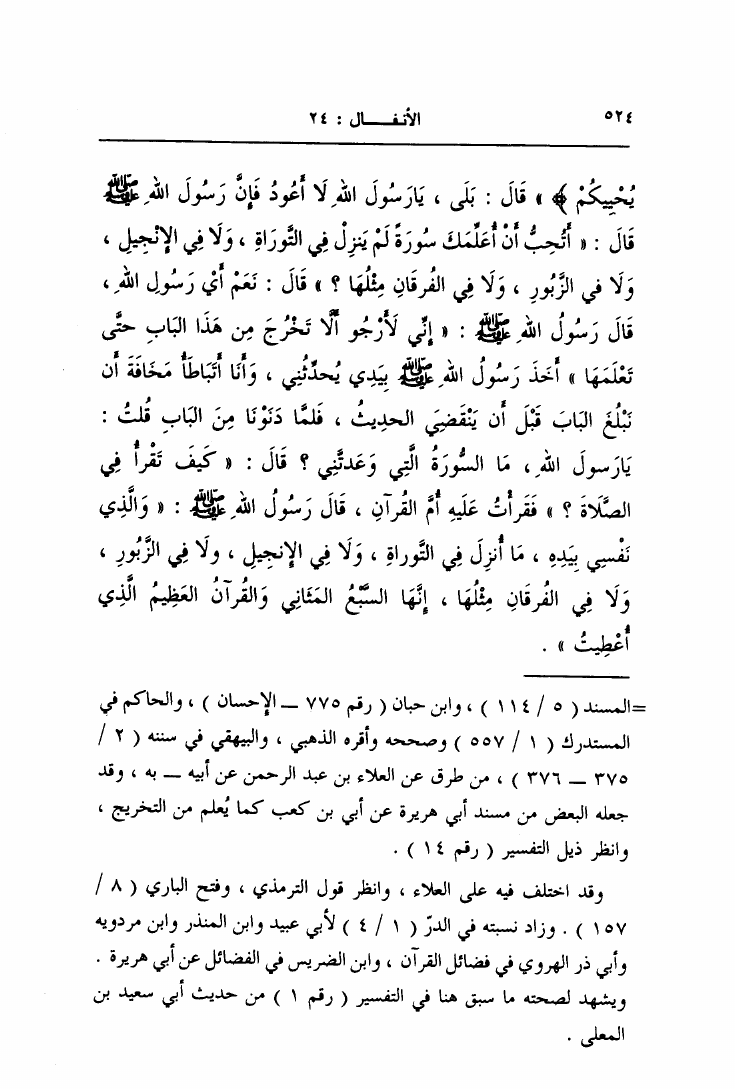 ٥٢٤ الأنفـــال : ٢٤
يُحْيِيكُمْ ﴾ » قَالَ : بَلَى ، يَارَسُولَ اللهِ لَا أَعُودُ فَإِنَّ رَسُولَ اللهِ ﷺ
قَالَ : « أَتُحِبُّ أَنْ أُعَلِّمَكَ سُورَةً لَمْ يَنزِلْ فِي التَّوْرَاةِ ، وَلَا فِي الإِنْجِيلِ ،
وَلَا في الزَّبُورِ ، وَلَا فِي الفُرقَانِ مِثْلُهَا ؟ » قَالَ : نَعَمْ أَيْ رَسُولِ اللهِ ،
قَالَ رَسُولُ اللهِ ﷺ : « إِنِّي لَأَرْجُو أَلَّا تَخْرُجَ مِن هَذَا البَابِ حتَّى
تَعْلَمَهَا » أَخَذَ رَسُولُ اللهِ ﷺ بِيَدِي يُحدِّثُنِي ، وَأَنَا أَتَبَاطَأُ مَخَافَةَ أَن
نَبْلُغَ البَابَ قَبْلَ أَن يَنْقَضِيَ الحديثُ ، فَلمَّا دَنَوْنَا مِنَ البَابِ قُلتُ :
يَارَسولَ اللهِ ، مَا السُّورَةُ الَّتِي وَعَدتَّنِي ؟ قَالَ : « كَيفَ تَقْرأُ فِي
الصَّلَاةَ ؟ » فَقَرأْتُ عَلَيهِ أُمَّ القُرآنِ ، قَالَ رَسُولُ اللهِ ﷺ : « وَالَّذِي
نَفْسِي بِيَدِهِ ، مَا أُنزِلَ فِي التَّوراةِ ، وَلَا فِي الإِنجِيلِ ، ولَا فِي الزَّبُورِ ،
وَلَا فِي الفُرقَانِ مِثْلُهَا ، إِنَّهَا السَّبْعُ المَثَانِي وَالقُرآنُ العَظِيمُ الَّذِي
أُعْطِيتُ » .
=المسند ( ٥ / ١١٤ ) ، وابن حبان ( رقم ٧٧٥ ــ الإحسان ) ، والحاكم في
المستدرك ( ١ / ٥٥٧ ) وصححه وأقره الذهبي ، والبيهقي في سننه ( ٢ /
٣٧٥ ــ ٣٧٦ ) ، من طرق عن العلاء بن عبد الرحمن عن أبيه ــ به ، وقد
جعله البعض من مسند أبي هريرة عن أبي بن كعب كما يُعلم من التخريج ،
وانظر ذيل التفسير ( رقم ١٤ ) .
وقد اختلف فيه على العلاء ، وانظر قول الترمذي ، وفتح الباري ( ٨ /
١٥٧ ) . وزاد نسبته في الدرّ ( ١ / ٤ ) لأبي عبيد وابن المنذر وابن مردويه
وأبي ذر الهروي في فضائل القرآن ، وابن الضريس في الفضائل عن أبي هريرة .
ويشهد لصحته ما سبق هنا في التفسير ( رقم ١ ) من حديث أبي سعيد بن
المعلى .